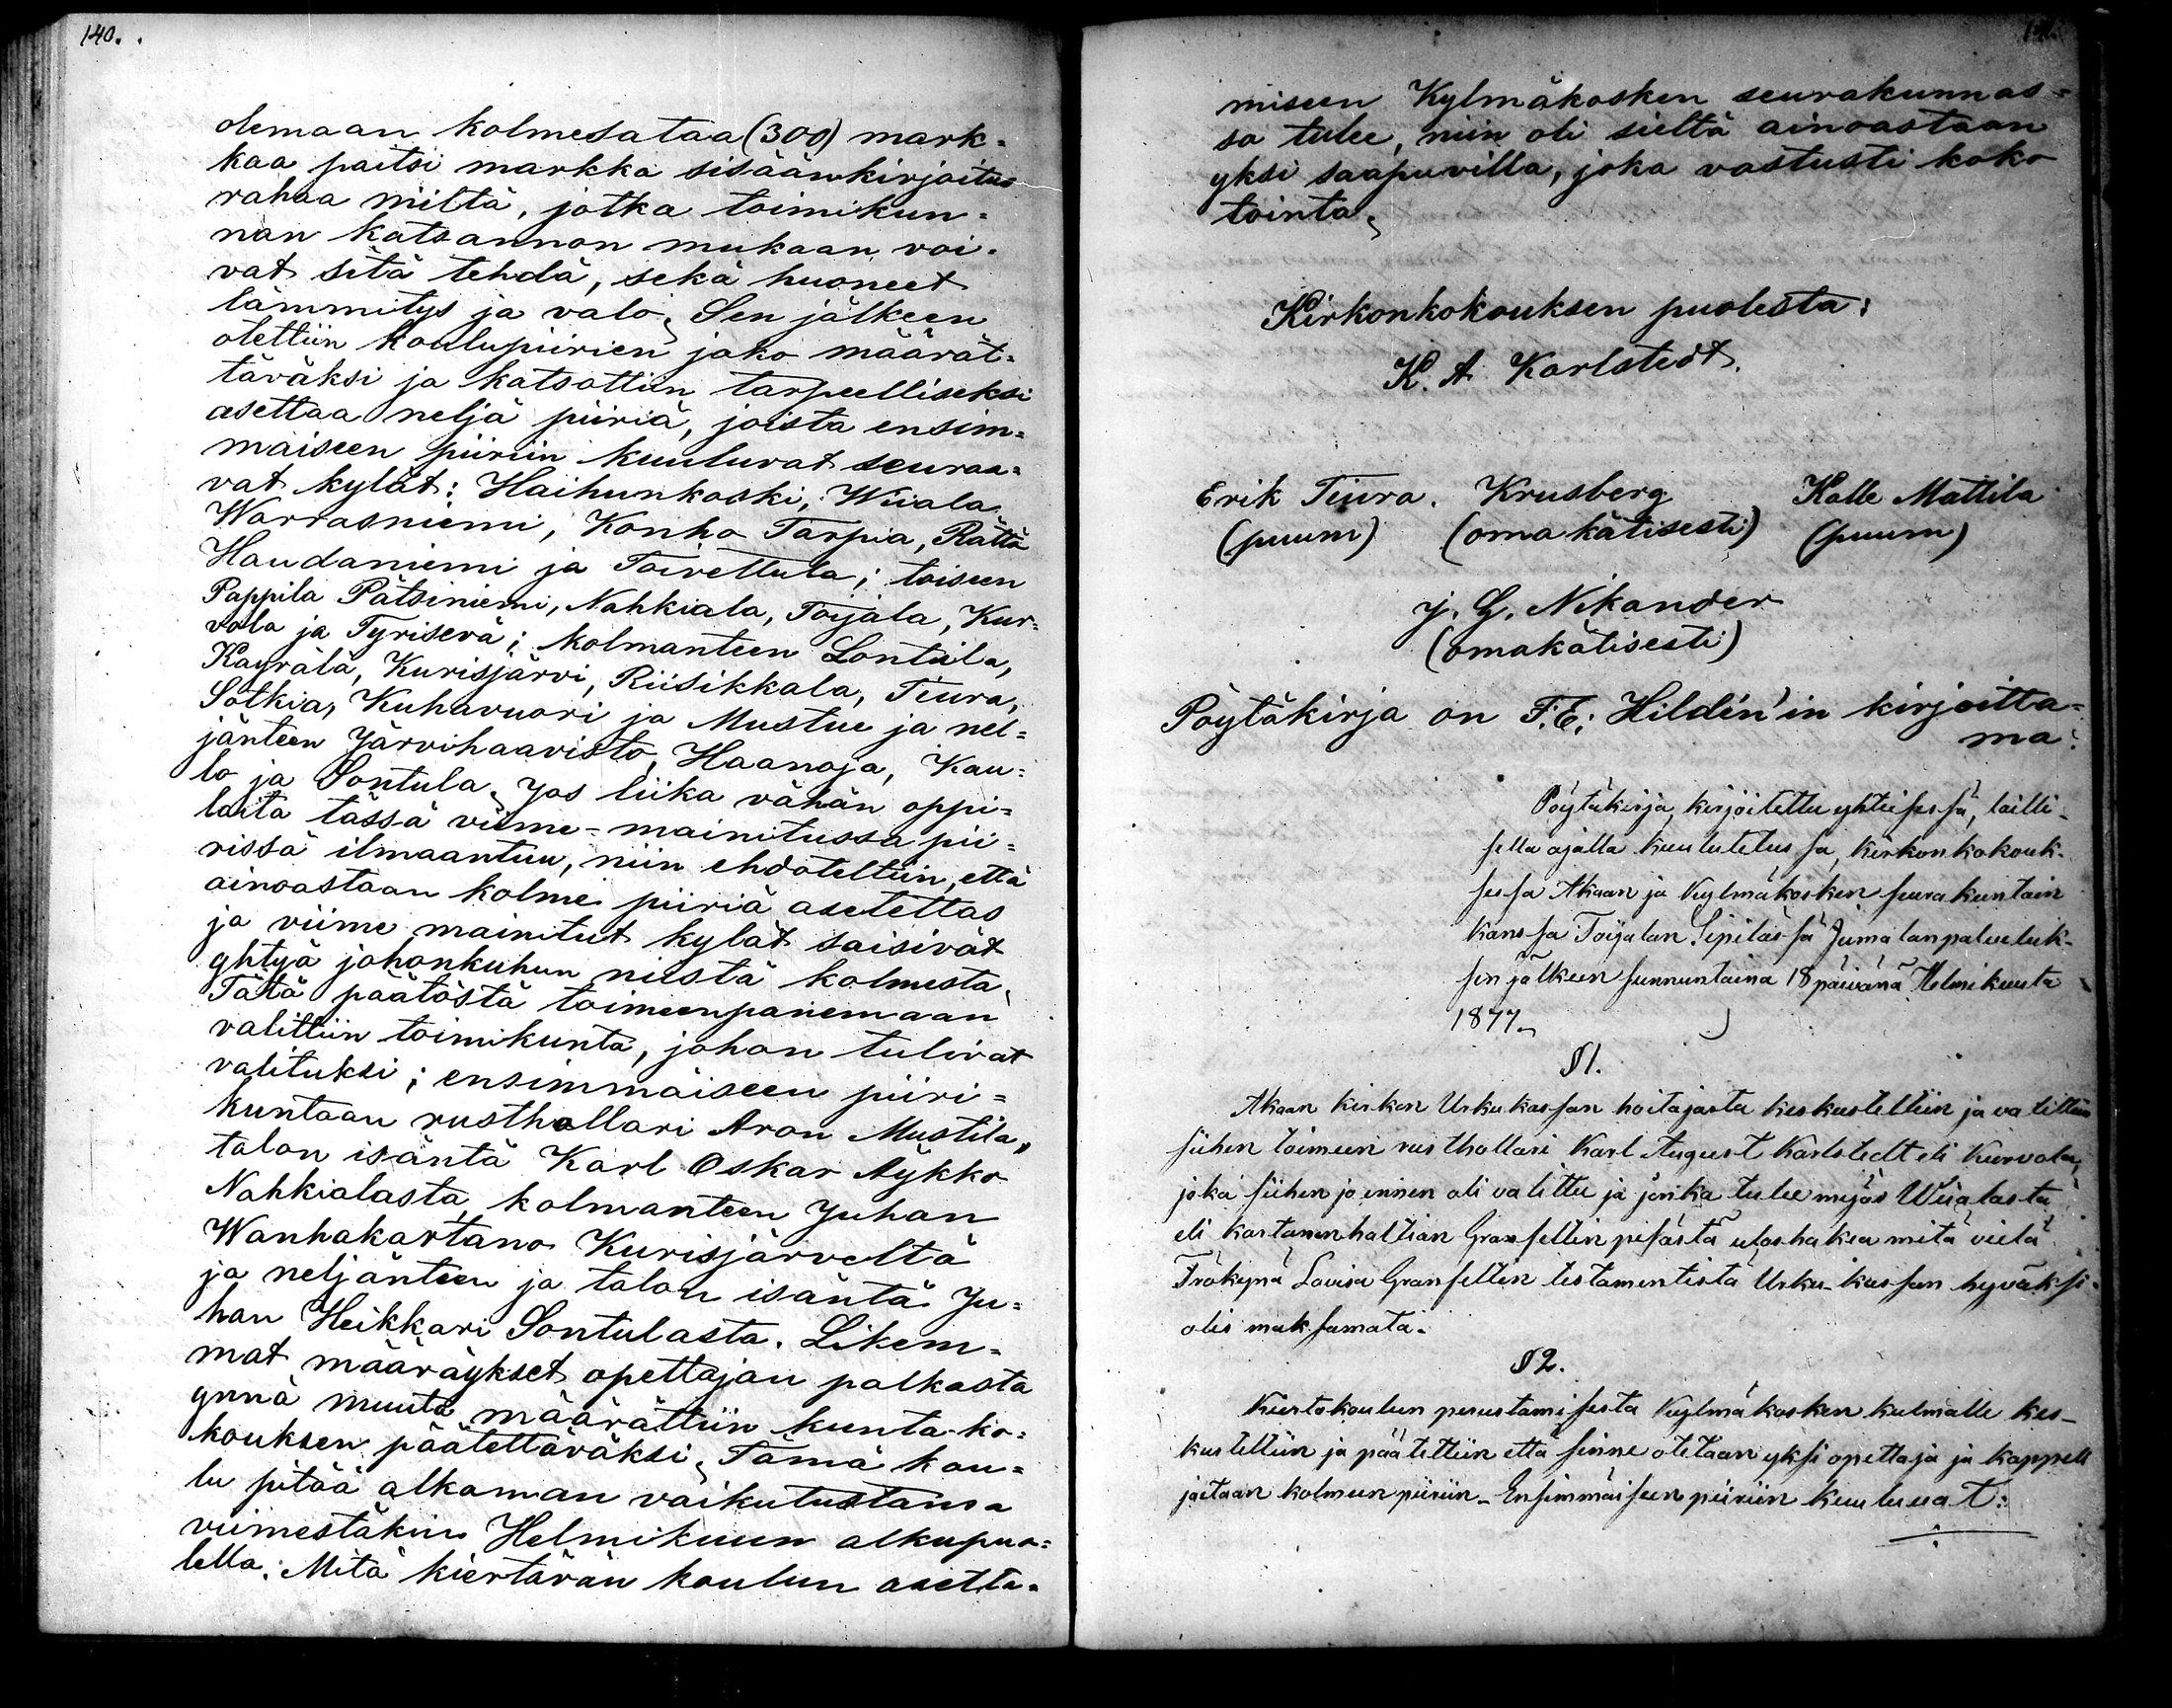 140.
olemaan kolmesataa (300) mark=
kaa paitsi markka sisäänkirjoitus
rahaa niiltä, jotka toimikun=
nan katsannon mukaan voi=
vat sitä tehdä, sekä huoneet
lämmitys ja valo. Sen jälkeen
otettiin koulupiirien jako määrät=
täväksi ja katsottiin tarpeelliseksi
asettaa neljä piiriä, joista ensim=
mäiseen piiriin kuuluvat seuraa=
vat kylät: Haihunkoski, Wiiala
Warrasniemi, Konho Tarpia, Rättö
Haudaniemi ja Toivettula; toiseen
Pappila Pätsiniemi, Nahkiala, Toijala, Kur=
vola ja Tyrisevä; kolmanteen Lontiila,
Käyrälä, Kurisjärvi, Riisikkala, Tiura,
Sotkia, Kuhavuori ja Mustue ja nel=
jänteen Järvihaavisto, Haanoja, Kau=
lo ja Sontula. Jos liika vähän oppi=
laita tässä viime-mainitussa pii=
rissä ilmaantuu, niin ehdoteltiin, että
ainoastaan kolme piiriä asetettas
ja viime mainitut kylät saisivat
yhtyä johonkuhun niistä kolmesta.
Tätä päätöstä toimeenpanemaan
valittiin toimikunta, johon tulivat
valituksi; ensimmäiseen piiri=
kuntaan rusthollari Aron Mustila,
talon isäntä Karl Oskar Äykko
Nahkialasta, kolmanteen Juhan
Wanhakartano Kurisjärveltä
ja neljänteen ja talon isäntä Ju=
han Heikkari Sontulasta. Likem=
mat määräykset opettajan palkasta
ynnä muuta määrättiin kunta-ko=
kouksen päätettäväksi. Tämä kou=
lu pitää alkaman vaikutustansa
viimestäkin Helmikuun alkupuo=
lella. Mitä kiertävän koulun asetta=
miseen Kylmäkosken seurakunnas=
sa tulee, niin oli sieltä ainoastaan
yksi saapuvilla, joka vastusti koko
tointa.
Kirkonkokouksen puolesta:
K. A. Karlstedt.
Erik Tiura. Krusberg Kalle Mattila
(puum) (oma kätisesti) (puum)
J. G. Nikander
(omakätisesti)
Pöytäkirja on F. E. Hildén'in kirjoitta=
ma.
Pöytäkirja, kirjoitettu yhteisessä, lailli-
sella ajalla kuulutetussa, kirkonkokouk-
sessa Akaan ja Kylmäkosken seurakuntain
kanssa Toijalan Sipilässä Jumalanpalveluk-
sen jälkeen sunnuntaina 18 päivänä Helmikuuta
1877.
§1.
Akaan kirkon Urkukassan hoitajasta keskusteltiin ja valittiin
siihen toimeen rusthollari Karl August Karlstedt eli Kurvola,
joka siihen jo ennen oli valittu ja jonka tulee myös Wiialasta
eli kartanonhaltian Granfeltin pesästä uloshakea mitä vielä
Frökynä Lovisa Granfeltin testamentistä Urku-kassan hyväksi
olis maksamata.
§2.
Kiertokoulun perustamisesta Kylmäkosken kulmalle kes-
kusteltiin ja päätettiin että sinne otetaan yksi opettaja ja kappeli
jaetaan kolmeen piiriin. Ensimmäiseen piiriin kuuluvat: